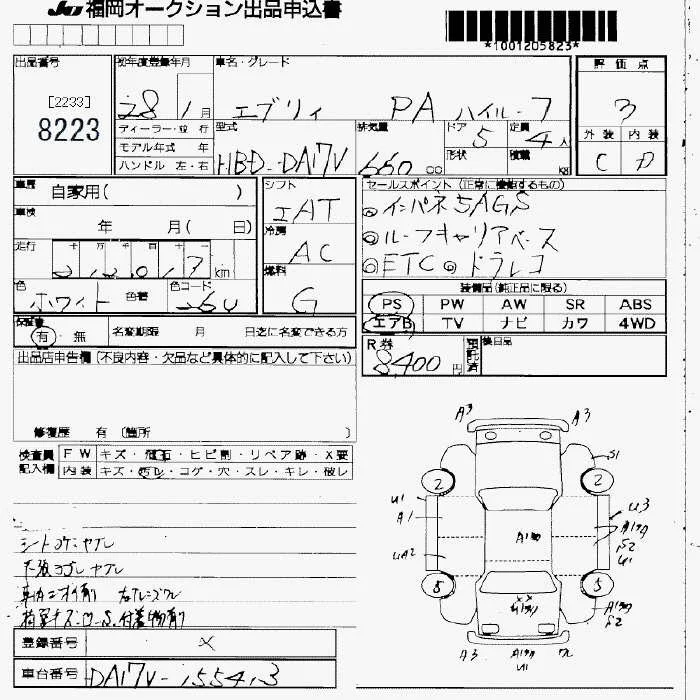 JU福岡オークション出品申込書
*1001205823*
出品番号
[2233]
8223
初年度登録年月
28 1月
ディーラー・並行
モデル年式 年
ハンドル 左・右
車名・グレード
エブリィ PA ハイルーフ
型式
HBD-DA17V
排気量
660 cc
ドア
5
定員
4人
形状
積載
kg
評価点
3
外装 内装
C D
車歴
自家用( )
車検
年 月( 日)
走行
十 万 千 百 十 一
km
色
ホワイト
色替
色コード
26U
シフト
エAT
冷房
AC
燃料
G
セールスポイント (正常に機能するもの)
◎インパネ5AGS
◎ルーフキャリアベース
◎ETC◎ドラレコ
装備品(純正品に限る)
PS PW AW SR ABS
エアB TV ナビ カワ 4WD
保証書
有・無
名変期限 月 日迄に名変できる方
R券
8400円
預託済
後日品
出品店申告欄(不良内容・欠品など具体的に記入して下さい)
修復歴 有 〔箇所 〕
検査員
記入欄
FW キズ・飛石・ヒビ割・リペア跡・X要
内装 キズ・汚レ・コゲ・穴・スレ・キレ・破レ
シートコゲヤブレ
天張ヨゴレヤブレ
登録番号
車台番号 DA17V-155413
A3 A3
S1
2 2
U1
A1
U3
S2
U1
UA2
8 5
S2
A3
U1